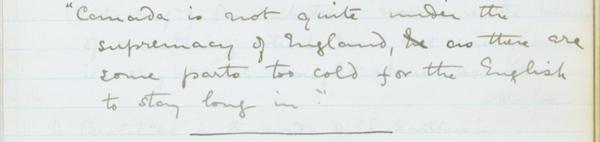 "Canada is not quite under the
supremacy of England, as there are
some parts too cold for the English
to stay long in."